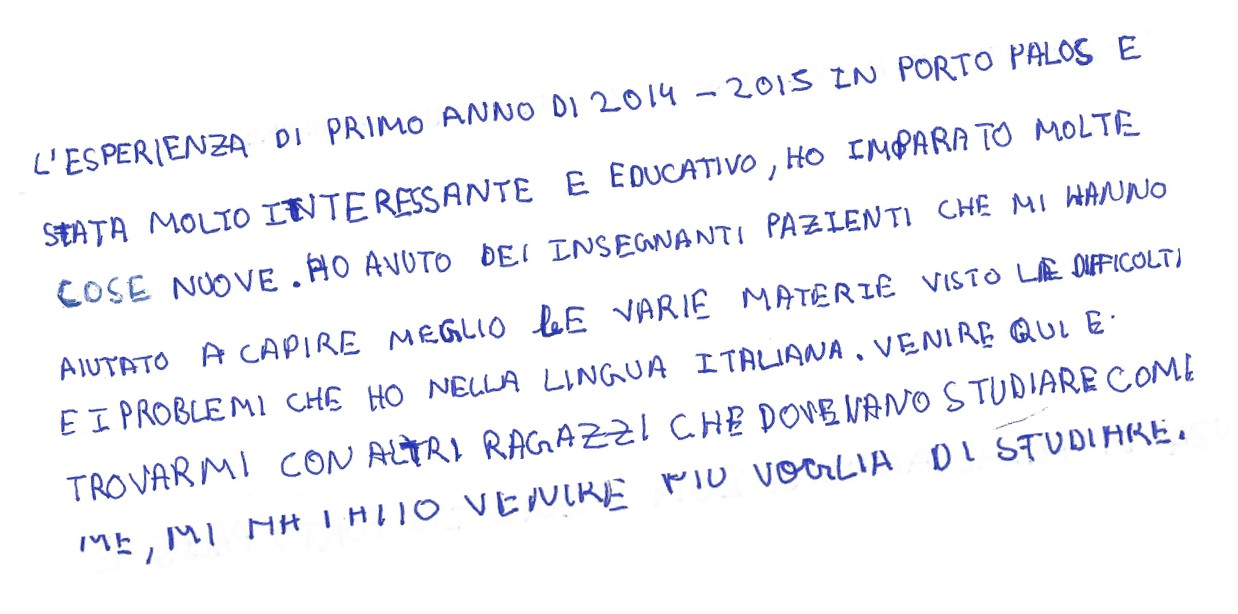 L'ESPERIENZA DI PRIMO ANNO DI 2014 - 2015 IN PORTO PALOS E
STATA MOLTO INTERESSANTE E EDUCATIVO, HO IMPARATO MOLTE
COSE NUOVE. HO AVUTO DEI INSEGNANTI PAZIENTI CHE MI HANNO
AIUTATO A CAPIRE MEGLIO LE VARIE MATERIE VISTO LE DIFFICOLTI
E I PROBLEMI CHE HO NELLA LINGUA ITALIANA. VENIRE QUI E
TROVARMI CON ALTRI RAGAZZI CHE DOVEVANO STUDIARE COME
ME, MI HA FATTO VENIRE PIU VOGLIA DI STUDIARE.